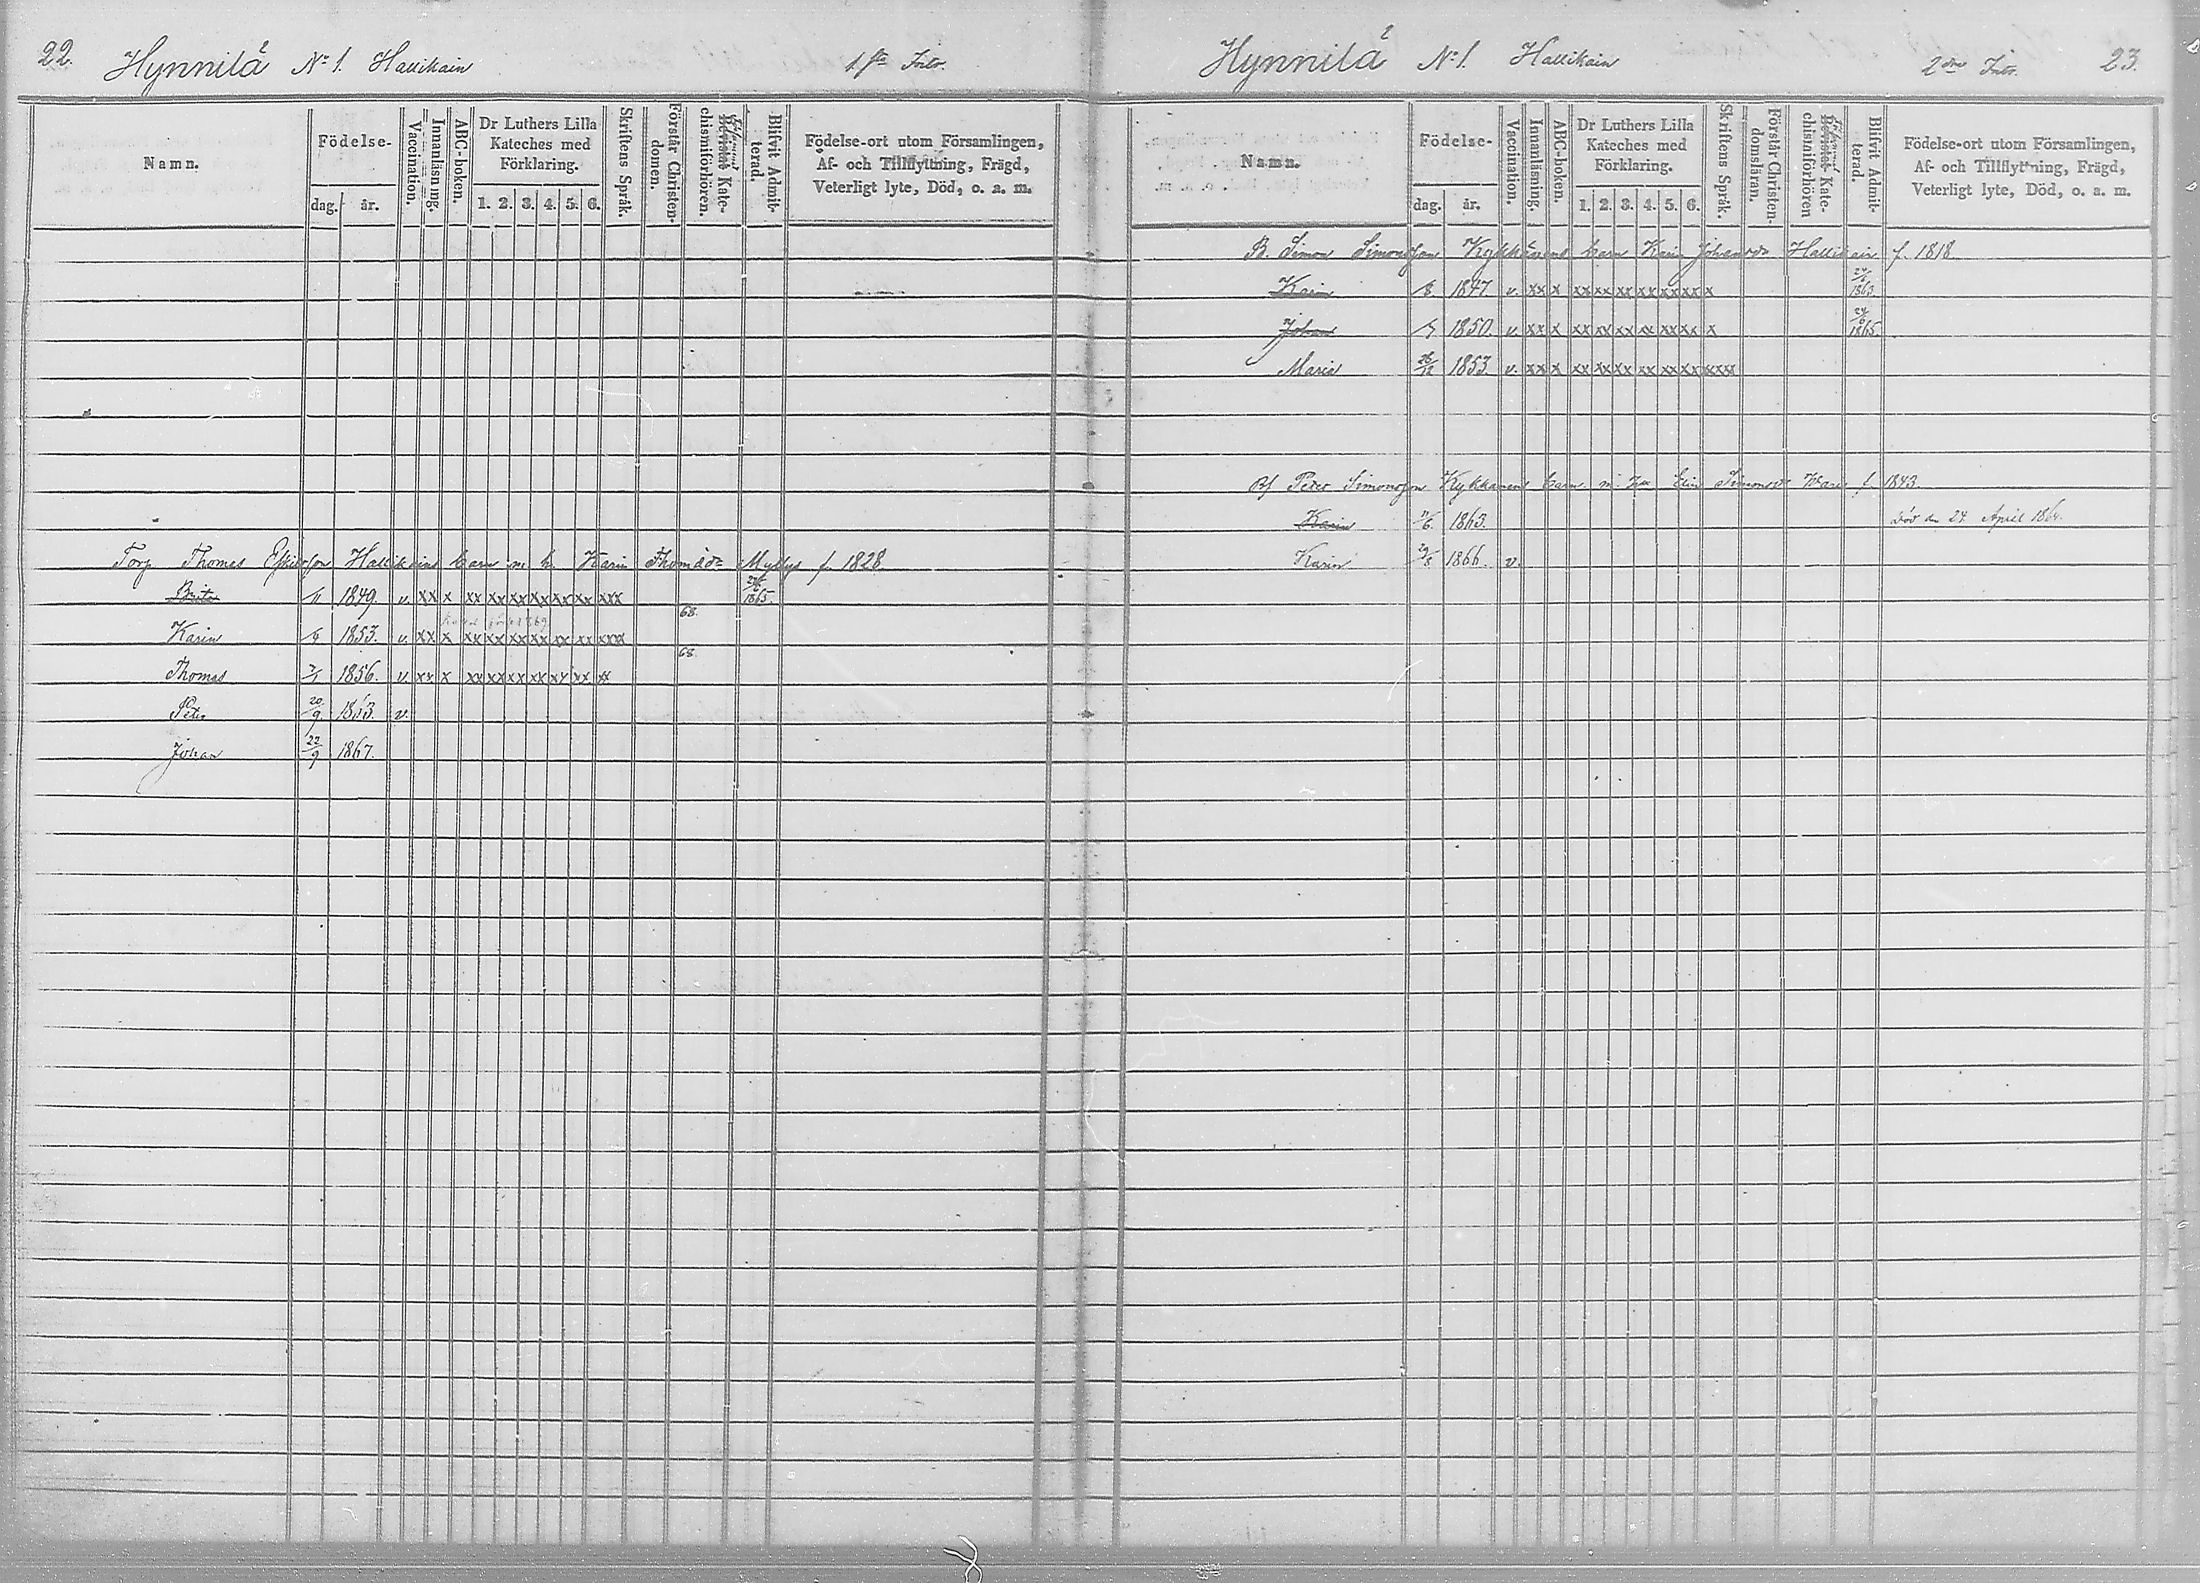 22. Hynnilä No 1. Hallikain 1sta Intr.
Namn.
Födelse-
dag. år.
Vaccination.
Innanläsning.
ABC-boken.
Dr Luthers Lilla
Kateches med
Förklaring.
1. 2. 3. 4. 5. 6.
Skriftens Språk.
Förstår Christen-
domen.
Kate-
chismiförhören.
Blifvit Admit-
terad.
Födelse-ort utom Församlingen,
Af- och Tillflyttning, Frägd,
Veterligt lyte, Död, o. a. m.
Torp. Thomas Eskilsson Hallikains barn m. h. Karin Thomasdr Myllys f. 1828.
Brita /11 1849. v. xx x xx xx xx xx xx xx xxx 1865.
68.
Karin /4 1853. v. xx x xx xx xx xx xx xx xxx
68.
Thomas 1856. v. xx x xx xx xx xx xx xx xx
Peter 20/9 1863. v.
Johan 22/9 1867.
Hynnilä No 1. Hallikain 2dra Intr. 23.
Namn.
Födelse-
dag. år.
Vaccination.
Innanläsning.
ABC-boken.
Dr Luthers Lilla
Kateches med
Förklaring.
1. 2. 3. 4. 5. 6.
Skriftens Språk.
Förstår Christen-
domsläran.
Kate-
chismiförhören
Blifvit Admit-
terad.
Födelse-ort utom Församlingen,
Af- och Tillflyttning, Frägd,
Veterligt lyte, Död, o. a. m.
B. Simon Simonsson Kykkänens barn Karin Johansdr Hallikain f. 1818
Karin /8 1847. v. xx x xx xx xx xx xx xx x 1863.
Johan 1850. v. xx x xx xx xx xx xx xx x 1865.
Maria 26/12 1853. v. xx x xx xx xx xx xx xx xxx
Peter Simonsson Kykkänens barn m. Elin Simonsdr f. 1843.
Karin 11/6 1863. Död den 24 April 1864.
Karin 29/8 1866. v.